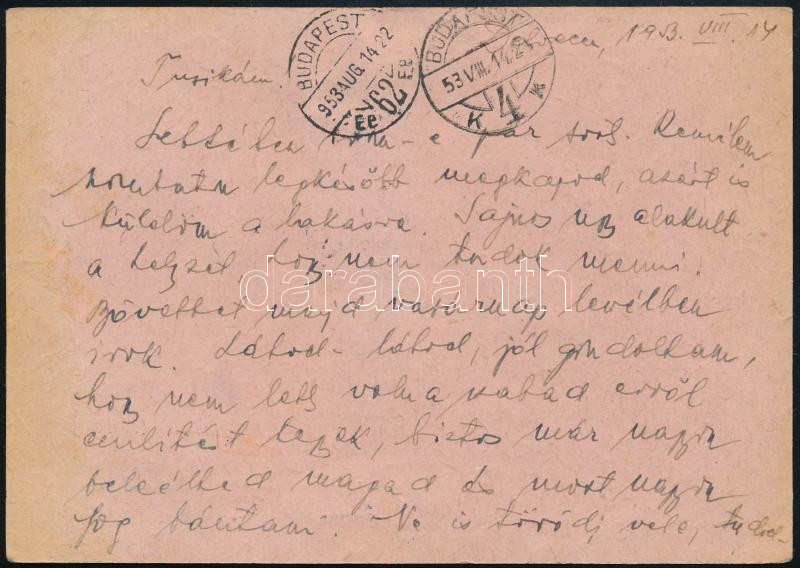 1953. VIII. 14
BUDAPEST
953 AUG. 14 22
62
BUDAPEST
53 VIII. 14. 21
K 4 K
Tusikám.
pár sort. Remélem
szombaton legkésőbb megkapod, azért is
küldöm a lakásra. Sajnos úgy alakult
a helyzet, hogy nem tudok menni.
Bővebbet majd vasárnap levélben
írok. Látod-látod, jól gondoltam,
hogy nem lett volna szabad erről
említést tegyek, biztos már nagyon
beleélted magad és most nagyon
fog bántani. Ne is törődj vele, tudod-
darabanth